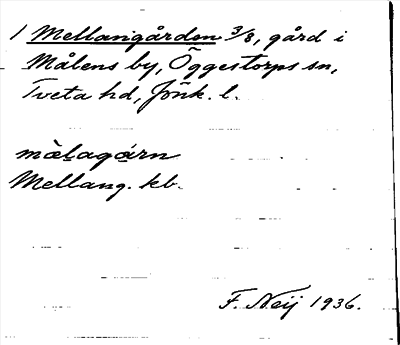 1 Mellangården 3/8, gård i
Målens by, Öggestorps sn,
Tveta hd, Jönk. l.
mèlagárn
Mellang. kb.
F. Neij 1936.